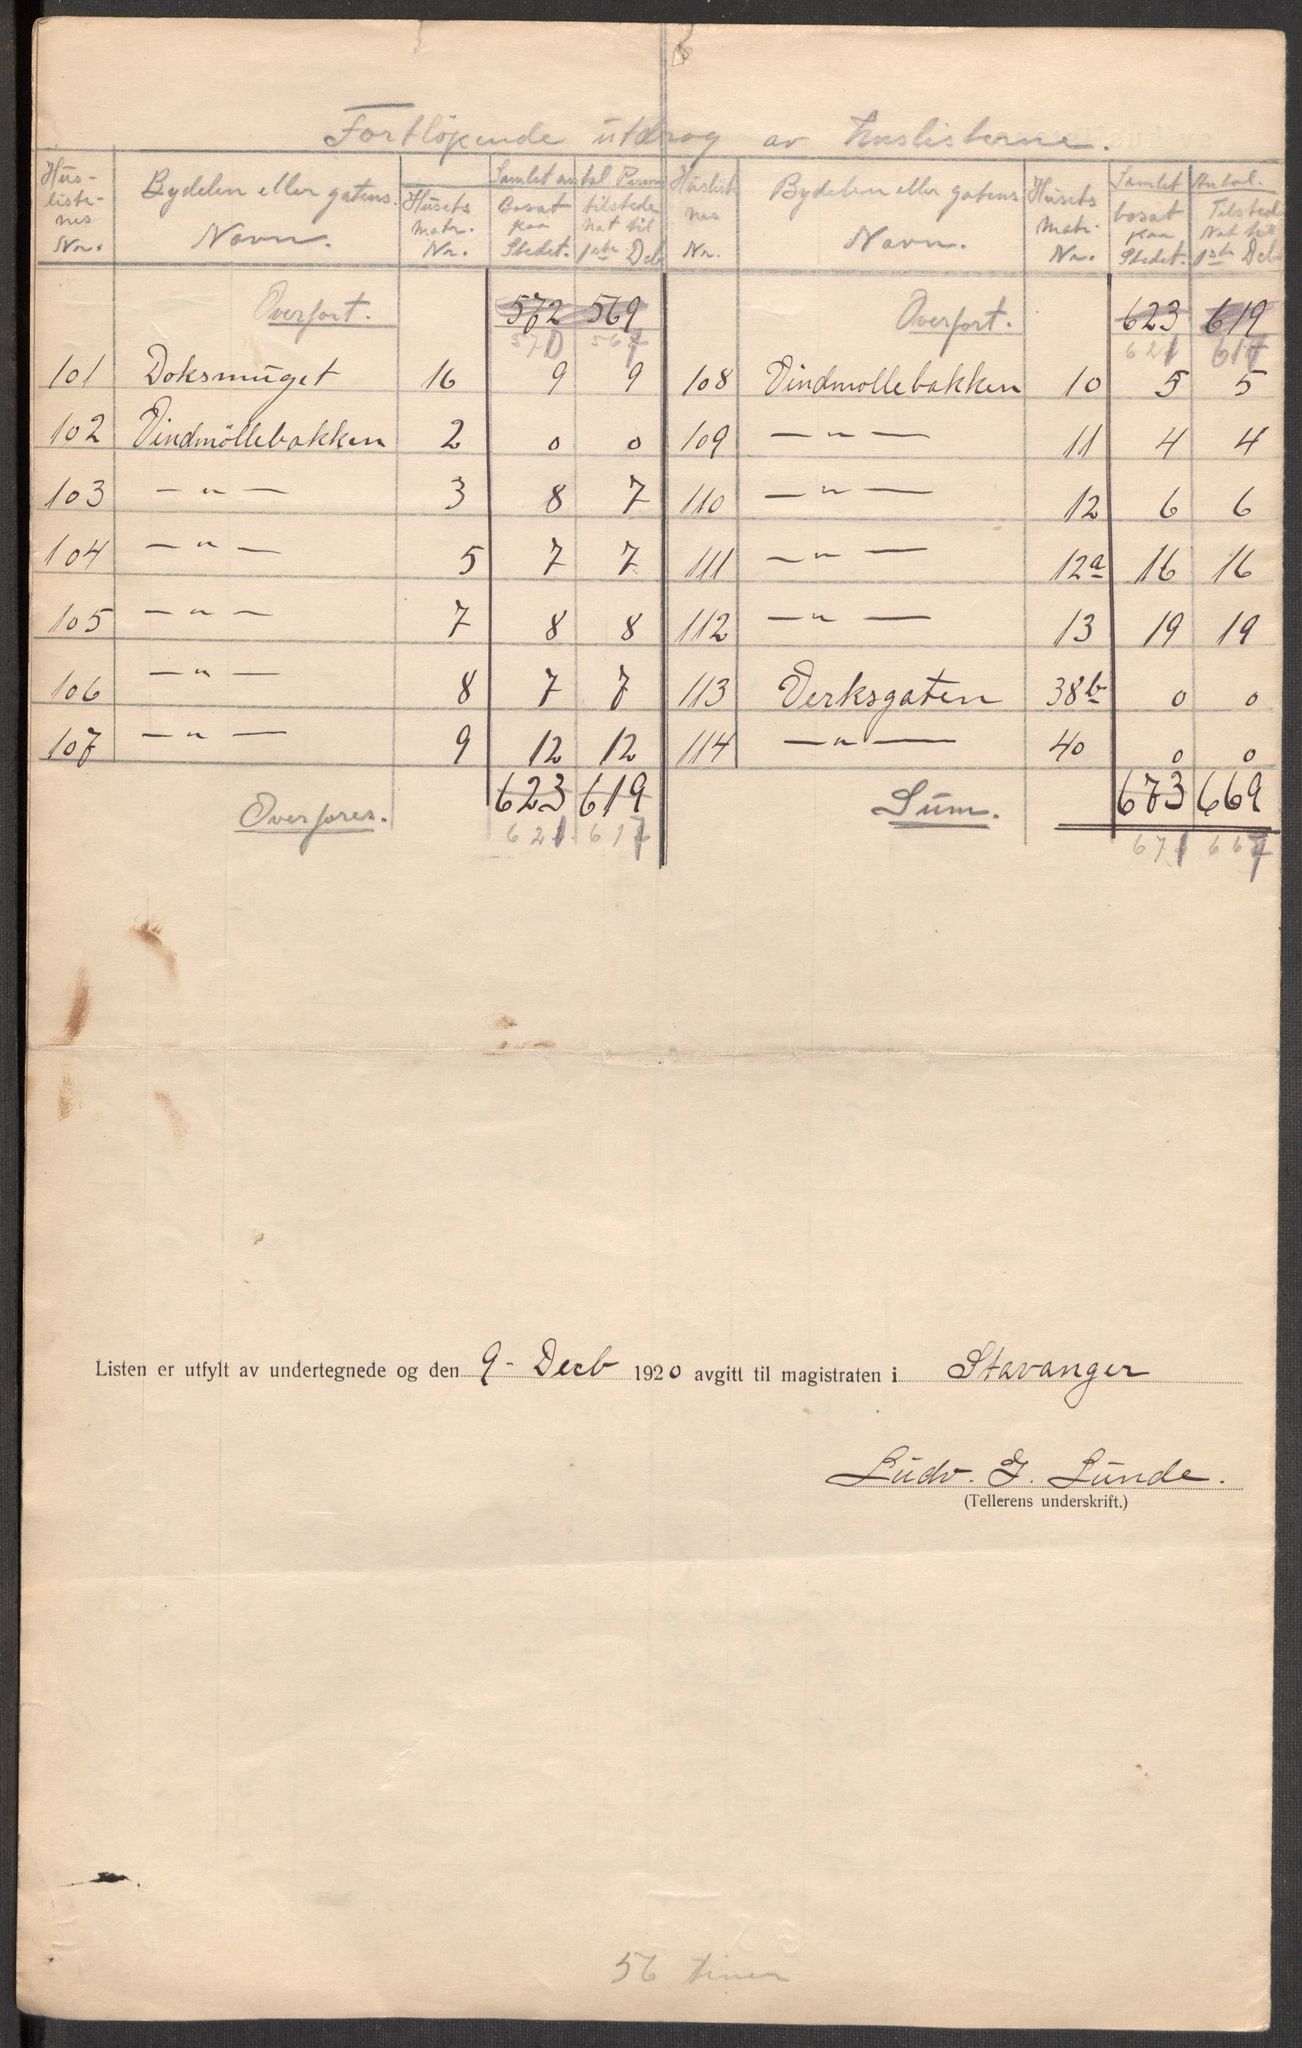 Fortløpende utdrag av huslisterne.
Hus-listenes Nr. Bydelen eller gatens Navn. Husets Matr. Nr. Samlet antal Person bosat paa Stedet. tilstede Nat til 1ste Decb Huslistnes Nr. Bydelen eller gatens Navn. Husets Matr. Nr. Samlet Antal. bosat paa Stedet. Tilstede Nat til 1ste Decb
Overført. 572 569 Overført. 623 619
570 567 621 617
101 Doksmuget 16 9 9 108 Vindmøllebakken 10 5 5
102 Vindmøllebakken 2 0 0 109 — " — 11 4 4
103 — " — 3 8 7 110 — " — 12 6 6
104 — " — 5 7 7 111 — " — 12a 16 16
105 — " — 7 8 8 112 — " — 13 19 19
106 — " — 8 7 7 113 Verksgaten 38b 0 0
107 — " — 9 12 12 114 — " — 40 0 0
Overføres. 623 619 Sum. 673 669
621 617 671 667
Listen er utfylt av undertegnede og den 9- Decb 1920 avgitt til magistraten i Stavanger
Ludv. J. Lunde.
(Tellerens underskrift.)
56 timer